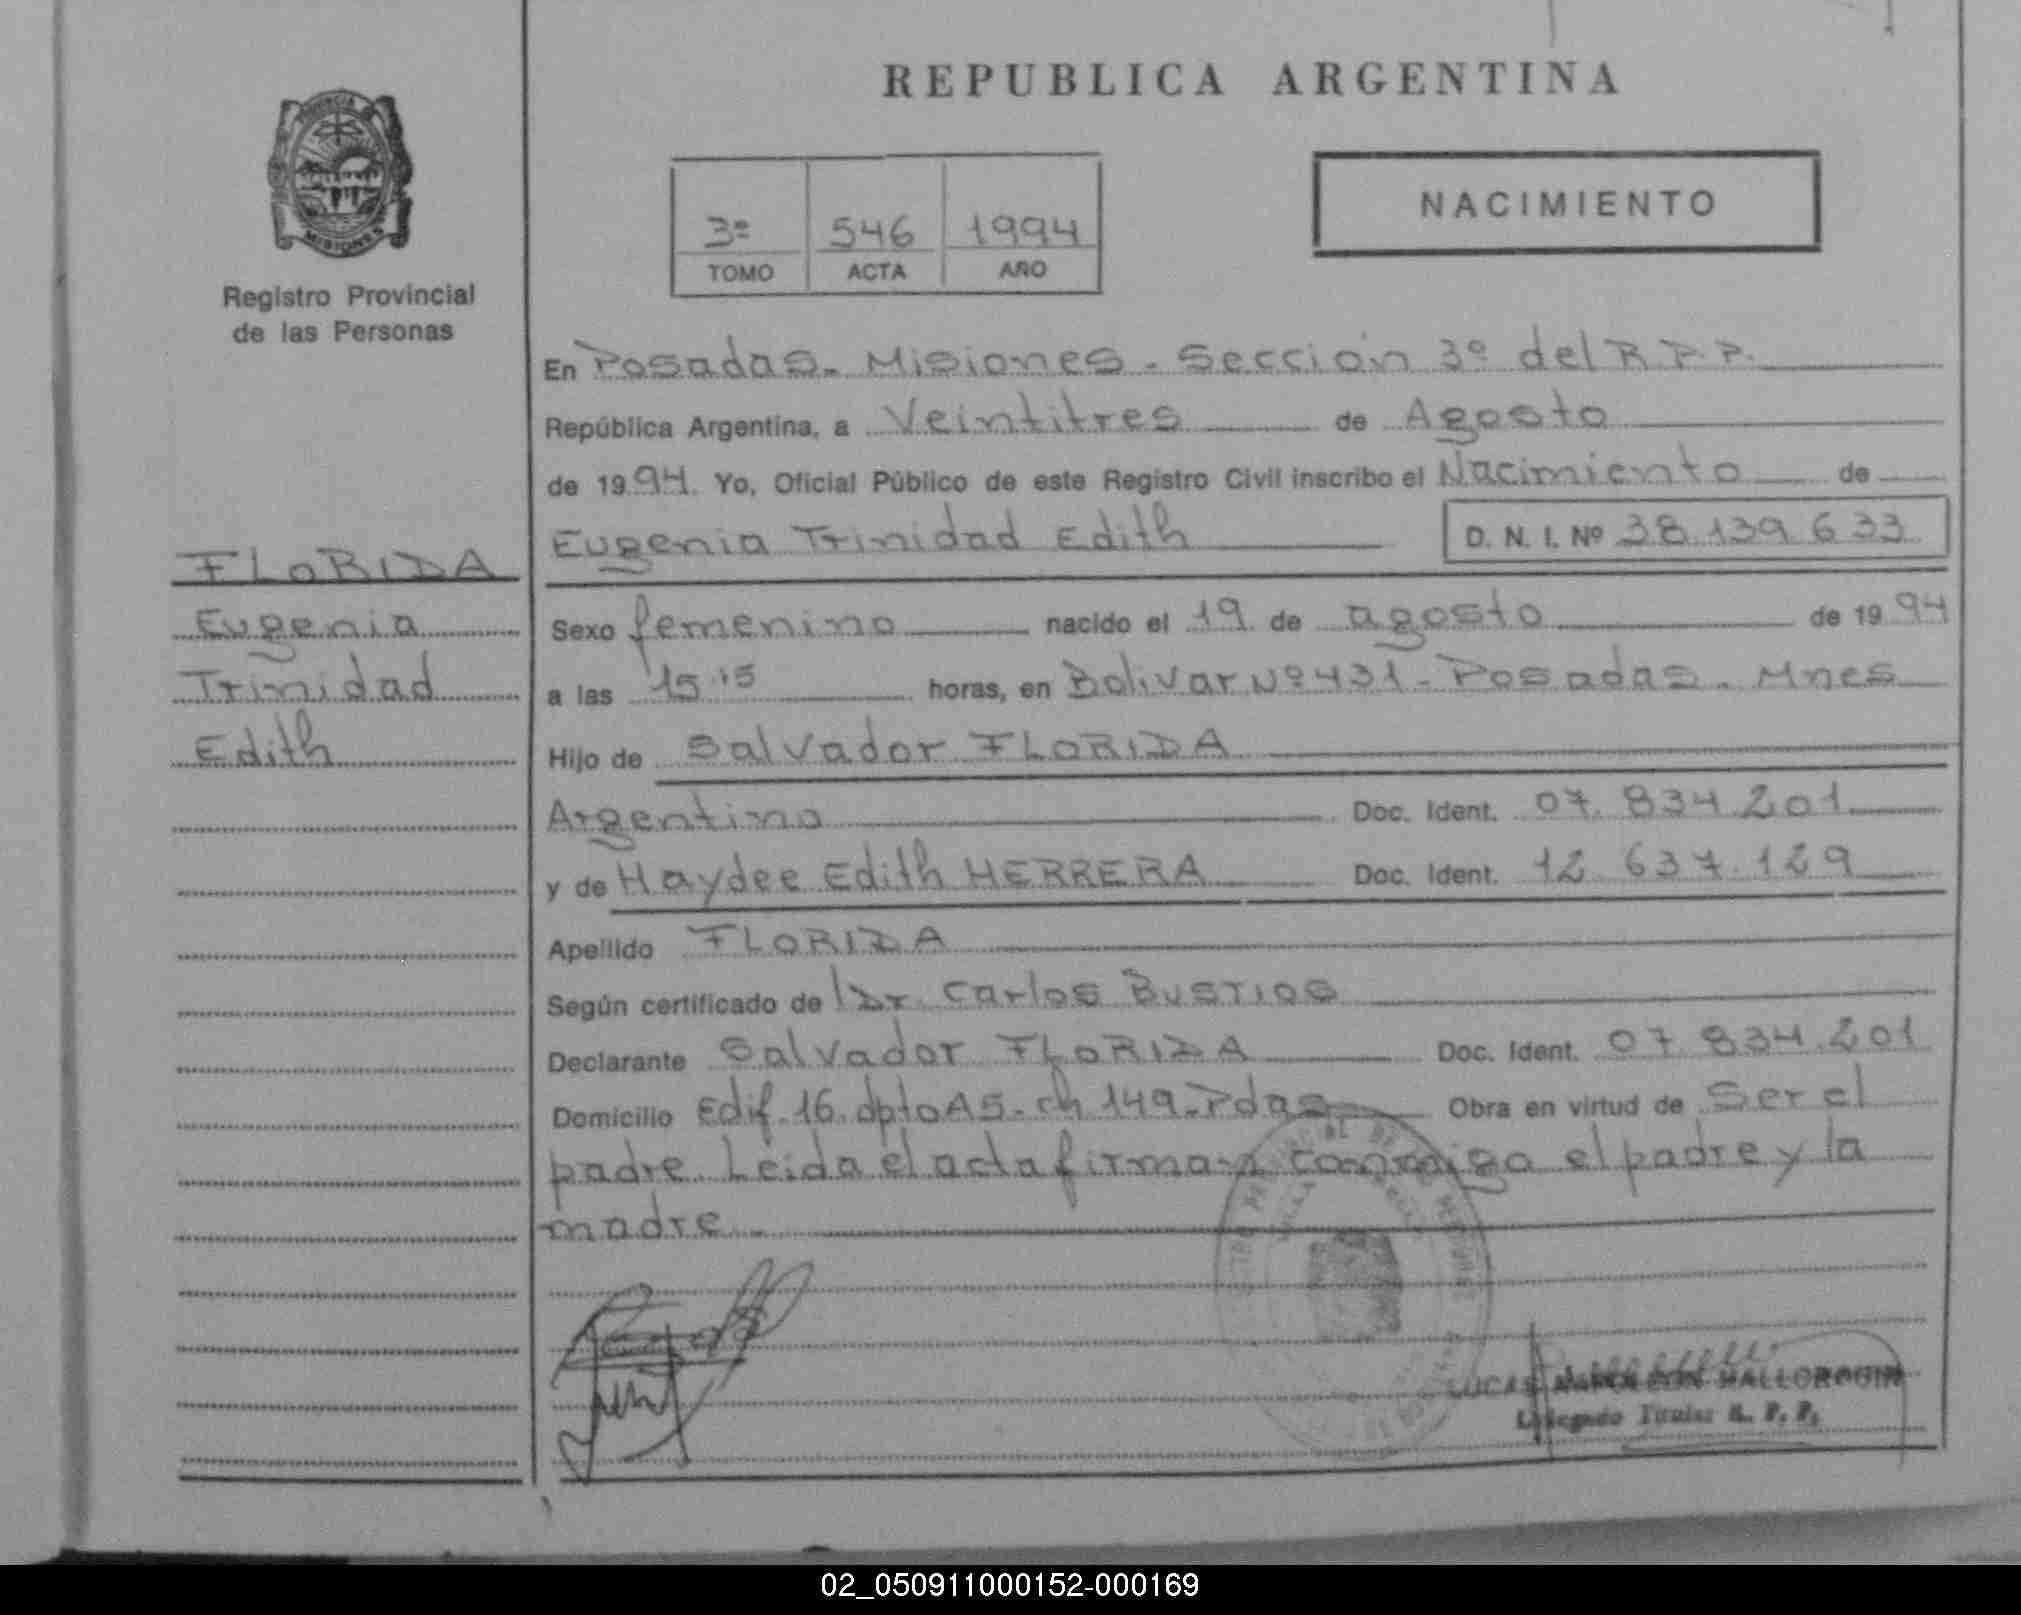 REPUBLICA ARGENTINA
PROVINCIA
MISIONES
Registro Provincial
de las Personas
3º 546 1994
TOMO ACTA AÑO
NACIMIENTO
En Posadas. Misiones. Sección 3º del R.P.P.
República Argentina, a Veintitres de Agosto
de 1994. Yo, Oficial Público de este Registro Civil inscribo el Nacimiento de
Eugenia Trinidad Edith D. N. I. Nº 38.139.633
FLORIDA
Eugenia
Trinidad
Edith
Sexo femenino nacido el 19 de agosto de 1994
a las 15.15 horas, en Bolivar Nº 431 - Posadas. Mnes
Hijo de Salvador FLORIDA
Argentino Doc. Ident. 07.834.201
y de Haydee Edith HERRERA Doc. Ident. 12.637.129
Apellido FLORIDA
Según certificado de Dr. Carlos BUSTIOS
Declarante Salvador FLORIDA Doc. Ident. 07.834.201
Domicilio Edif. 16. dpto A5. ch 149. Pdas Obra en virtud de Ser el
padre. Leida el acta firman conmigo el padre y la
madre.
LUCAS NAPOLEON MALLORQUIN
Delegado Titular R. P. P.
02_050911000152-000169